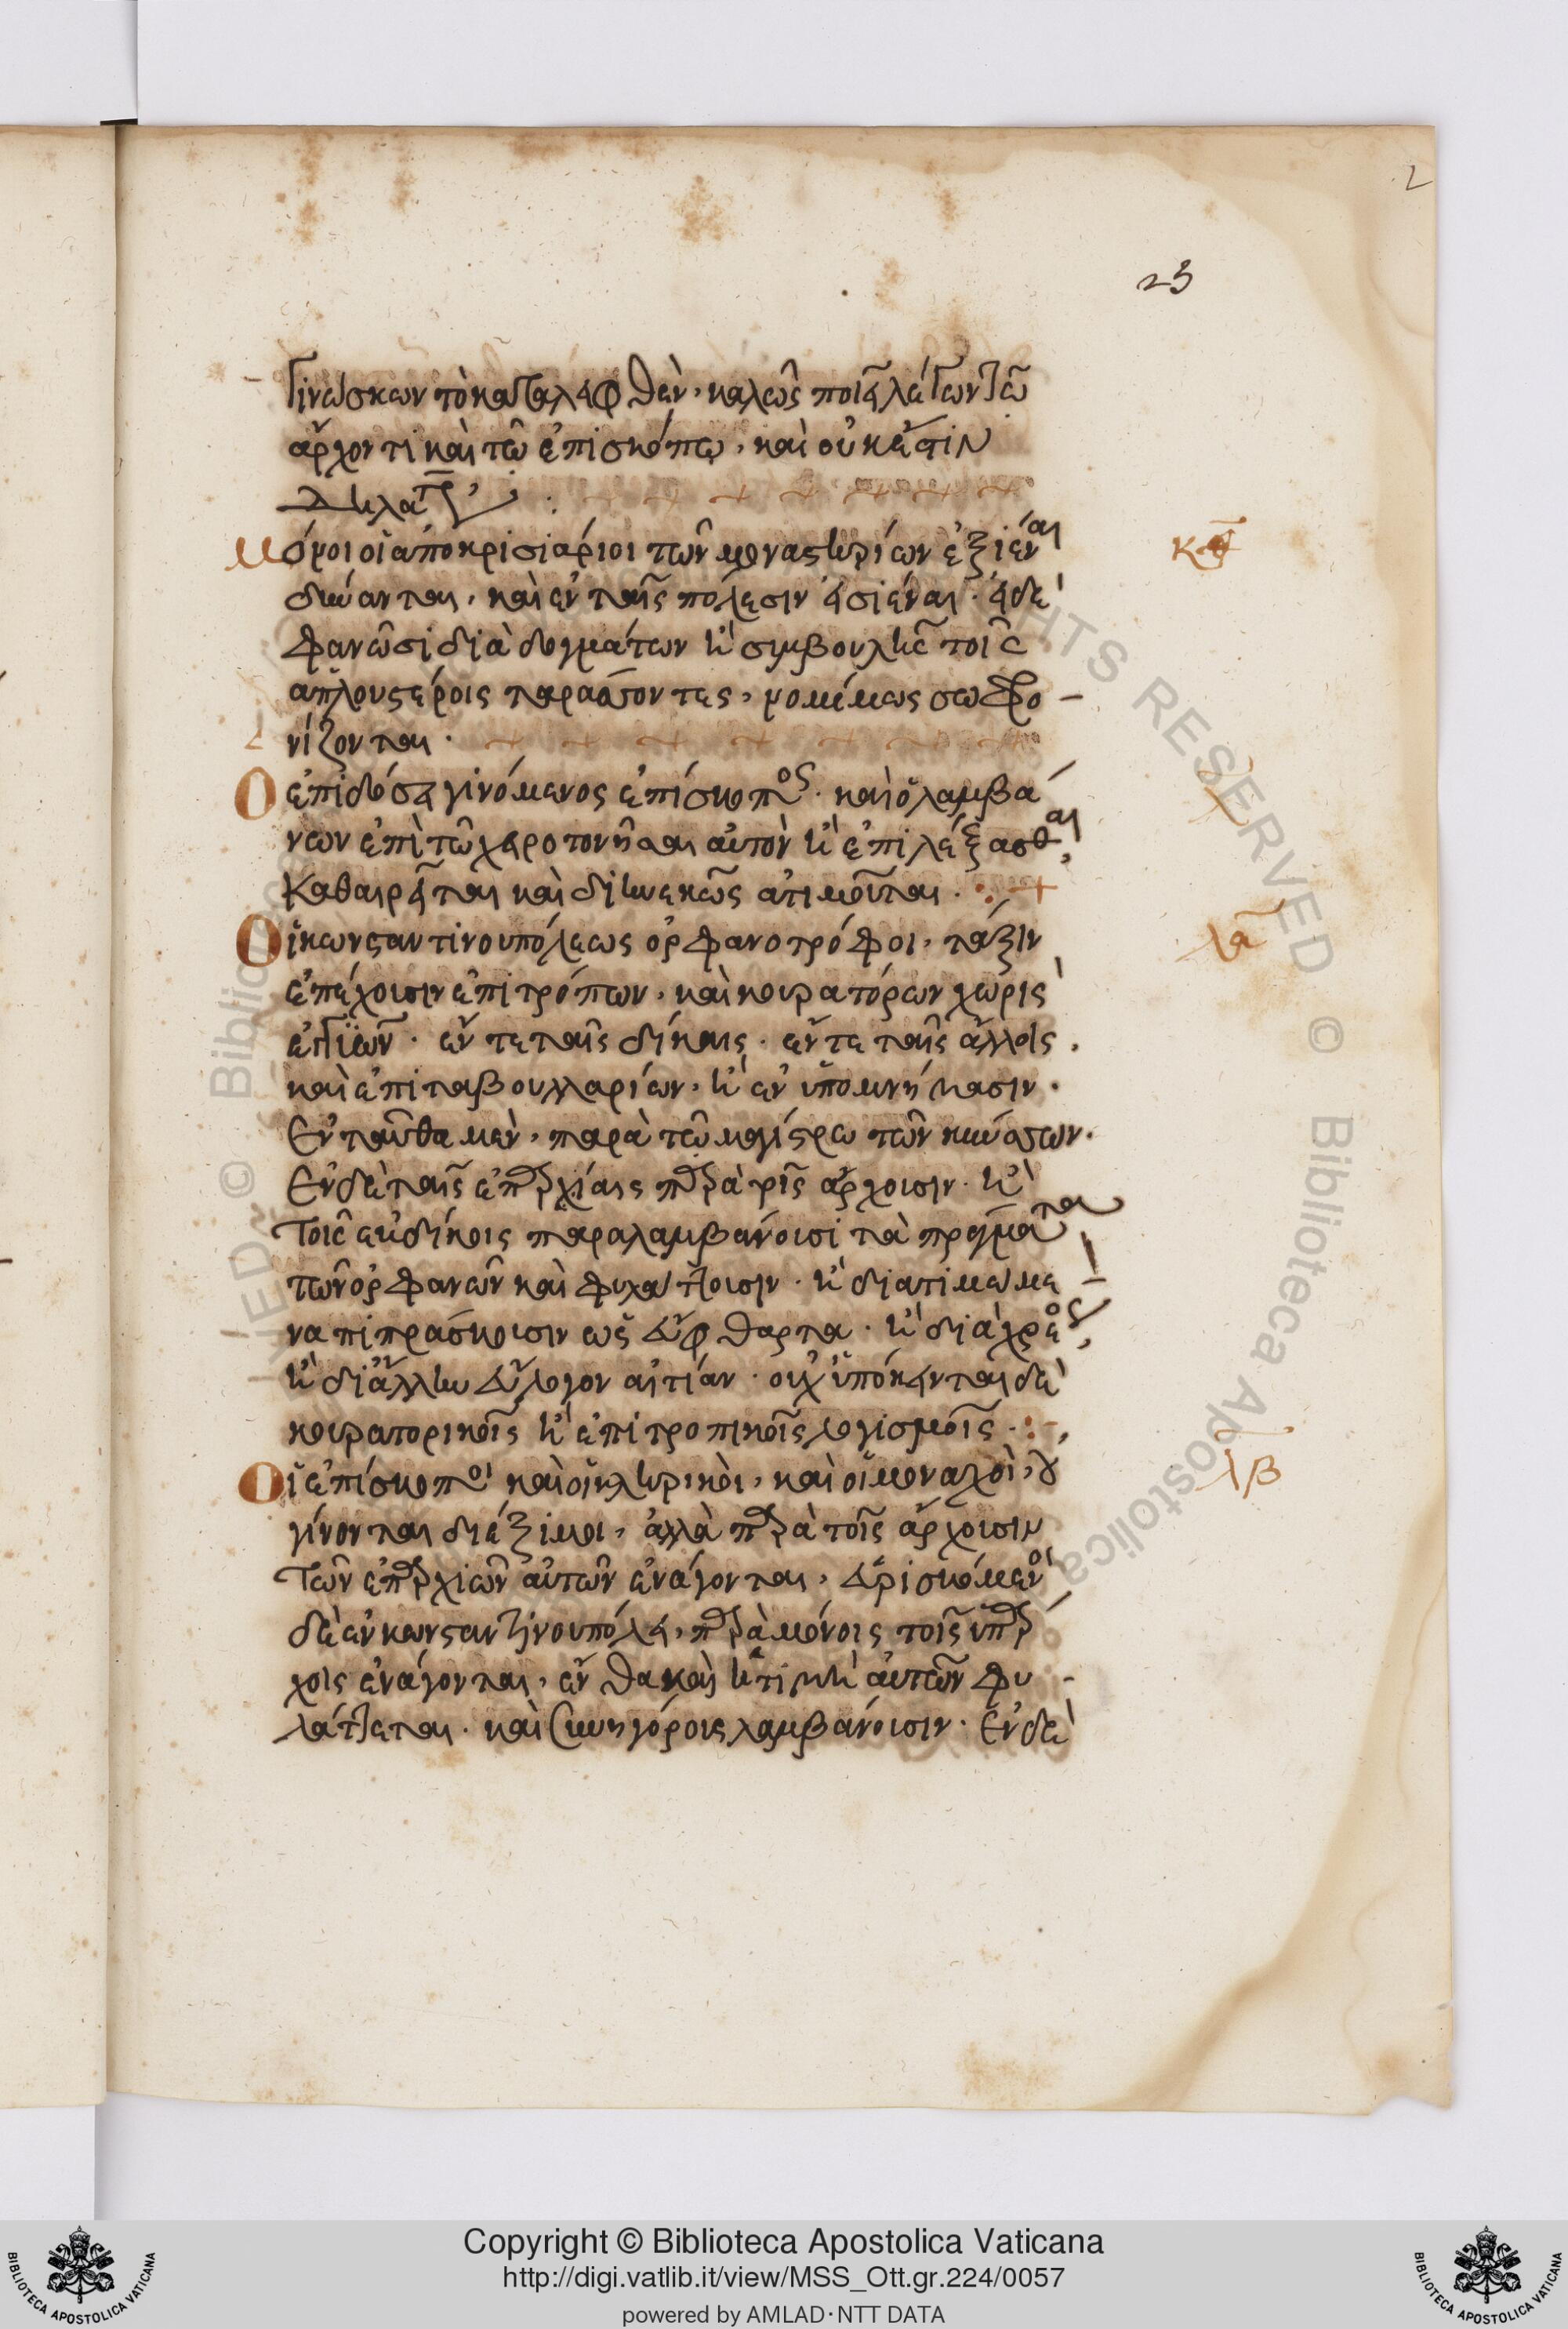 2
23
Γινώσκων τὸ καταληφθὲν, καλῶς ποιεῖ λέγων τῶ
ἄρχοντι καὶ τῶ ἐπισκόπω, καὶ οὐκ ἔστιν
μόνοι οἱ ἀποκρισιάριοι τῶν μοναστηρίων ἐξιέναι
δύνανται, καὶ ἐν ταῖς πόλεσιν εἰσιέναι· εἰ δὲ
φανῶσι διὰ δογμάτων κ συμβουλῆς τοῖς
ἁπλουστέροις ταράσσοντες, νομίμως σωφρο-
νίζονται·
Ο ἐπὶ δόσει γινόμενος ἐπίσκοπος· καὶ ὁ λαμβά
νων ἐπὶ τῶ χειροτονῆσαι αὐτὸν κ ἐπιλέξασθαι,
καθαιρεῖται καὶ διηνεκῶς ἀτιμοῦται·
λα
Οἱ κωνσταντίνουπόλεως ὀρφανοτρόφοι, τάξιν
ἐπέχουσιν ἐπιτρόπων, καὶ κουρατόρων χωρὶς
ἐγγυῶν· ἔν τε ταῖς δίκαις· ἔν τε ταῖς ἄλλοις.
καὶ ἐπὶ ταβουλλαρίων, κ ἐν ὑπομνήμασιν·
Ἐνταῦθα μὲν, παρὰ τῶ μαγίστρω τῶν κηνσων·
Ἐν δὲ ταῖς ἐπαρχίαις παρὰ τοῖς ἄρχουσιν· κ
τοῖς ἐκδίκοις παραλαμβάνουσι τὰ πράγματα
τῶν ὀρφανῶν καὶ φυλάττουσιν· κ διατιμώμε
να πιπράσκουσιν ὡς εὔφθαρτα· κ διὰ χρέος,
κ δι ἄλλην εὔλογον αἰτίαν· οὐχ ὑπόκεινται δὲ
κουρατορικοῖς κ ἐπιτροπικοῖς λογισμοῖς·
λβ
Οἱ ἐπίσκοποι καὶ οἱ κληρικοὶ, καὶ οἱ μοναχοὶ, οὐ
γίνονται διέξιμοι, ἀλλὰ παρὰ τοῖς ἄρχουσιν
τῶν ἐπαρχιῶν αὐτῶν ἐνάγονται, εὑρισκόμενοι
δὲ ἐν κωνσταντίνουπόλει, παρὰ μόνοις τοῖς ὑπάρ
χοις ἐνάγονται, ἔνθα καὶ ἡ τιμὴ αὐτῶν φυ-
λάττεται· καὶ συνηγόρους λαμβάνουσιν· Ἐν δὲ
Copyright © Biblioteca Apostolica Vaticana
http://digi.vatlib.it/view/MSS_Ott.gr.224/0057
powered by AMLAD·NTT DATA
BIBLIOTECA APOSTOLICA VATICANA
BIBLIOTECA APOSTOLICA VATICANA